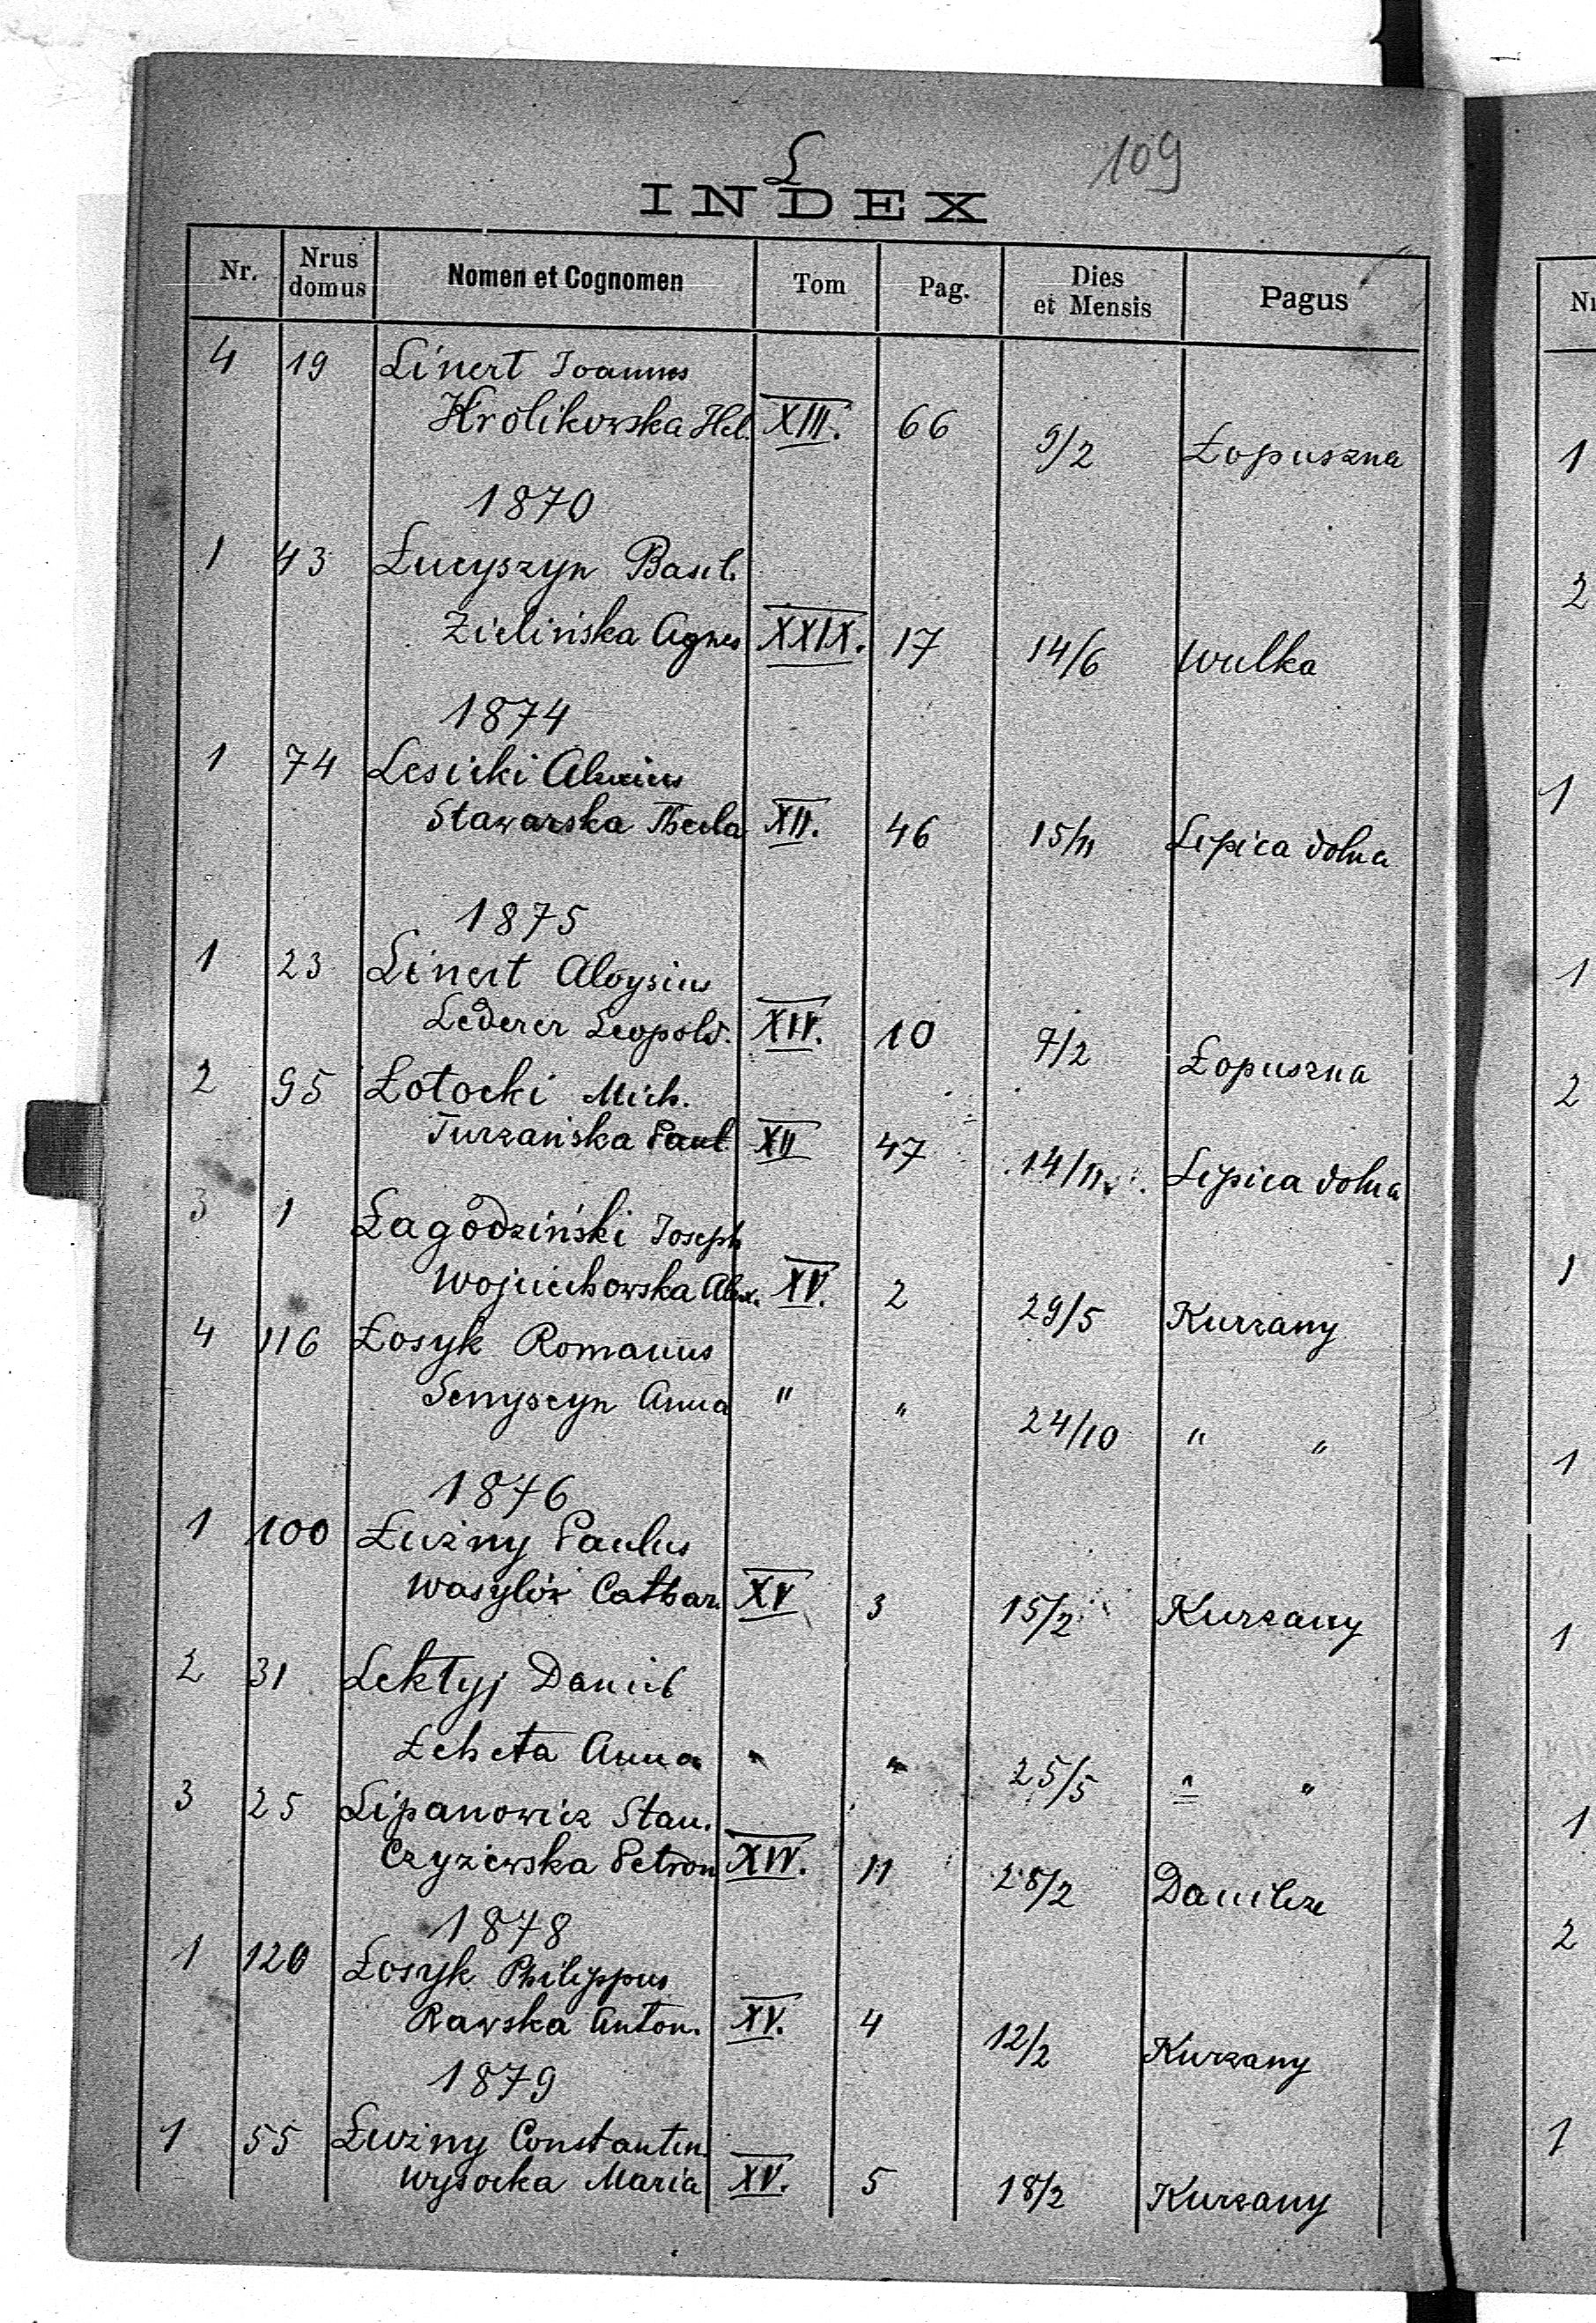 L
109
INDEX
Nr. Nrus domus Nomen et Cognomen Tom Pag. Dies et Mensis Pagus
4 19 Linert Joannes
Krolikowska Hel. XIII. 66 9/2 Łopuszna
1870
1 43 Łucyszyn Basil.
Zielińska Agnes XXIX. 17 14/6 Wulka
1874
1 74 Lesicki
Stawarska Thecla XII. 46 15/11 Lipica dolna
1875
1 23 Linert Aloysius
Lederer Leopold. XIV. 10 7/2 Łopuszna
2 95 Łotocki Mich.
Turzańska Paul. XII 47 14/11. Lipica dolna
3 1 Łagodziński Joseph
Wojciechowska Alex. XV. 2 29/5 Kurzany
4 116 Łosyk Romanus
Senyszyn Anna " " 24/10 " "
1876
1 100 Łużny Paulus
Wasylów Cathar. XV 3 15/2 Kurzany
2 31 Lektyj Daniel
Łeheta Anna " " 25/5 " "
3 25 Lipanowicz Stan.
Czyżewska Petron XIV. 11 28/2 Danilcze
1878
1 120 Łosyk Philippus
Rawska Anton. XV. 4 12/2 Kurzany
1879
1 55 Łużny Constantin.
Wysocka Maria XV. 5 18/2 Kurzany
Nr
1
2
1
1
2
1
1
1
1
2
1